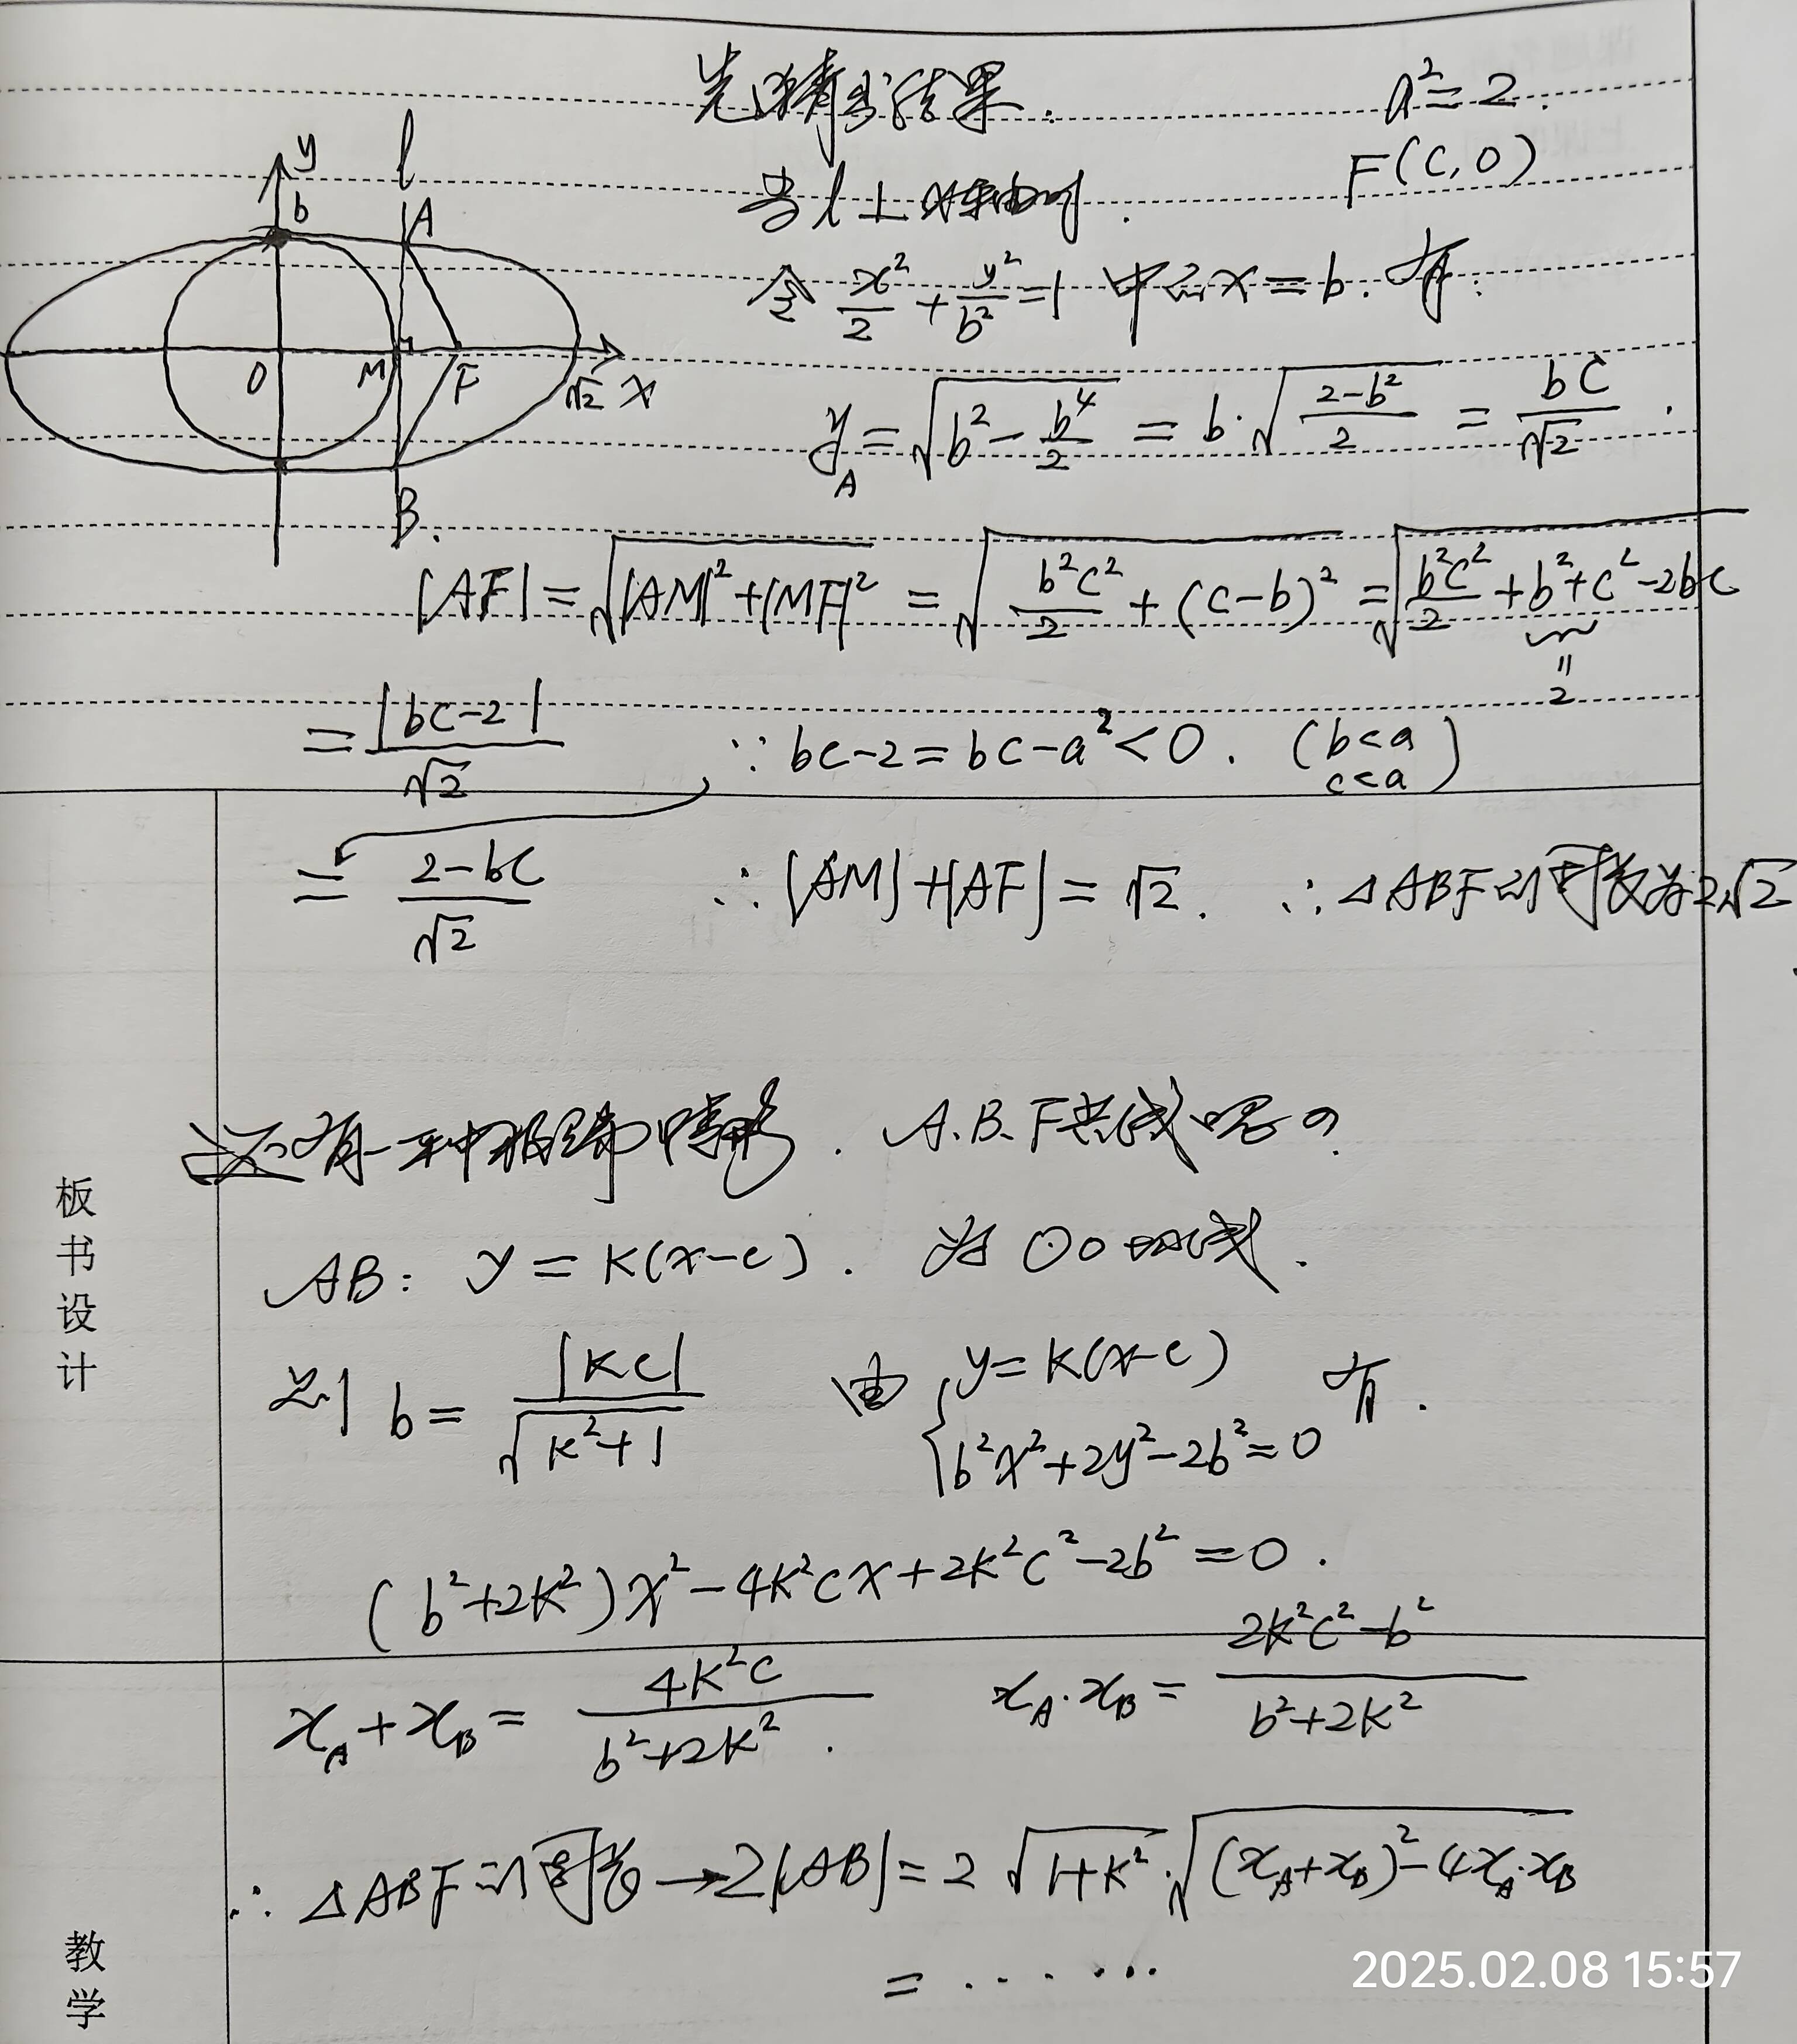 先猜出结果.
a²=2.
F(C,0)
当l⊥x轴时.
令 x²/2 + y²/b² = 1 中的x=b. 有:
y
b
l
A
O
M
F
√2
x
B.
y_A = √(b² - b⁴/2) = b·√((2-b²)/2) = bC/√2 .
|AF| = √(|AM|²+|MF|²) = √(b²c²/2 + (c-b)²) = √(b²c²/2 + b²+c²-2bc)
=2
= |bc-2|/√2 ∵ bc-2=bc-a²<0. (b<a c<a)
= (2-bc)/√2 ∴ |AM|+|AF|=√2. ∴ △ABF的周长为2√2.
还有一种极端情形. A.B.F共线呢?
AB: y=k(x-c). 为⊙O切线.
则 b = |kc|/√(k²+1) 由 { y=k(x-c) b²x²+2y²-2b²=0 有.
板书设计
(b²+2k²)x²-4k²cx+2k²c²-2b²=0.
x_A+x_B = 4k²c/(b²+2k²) . x_A·x_B = (2k²c²-b²)/(b²+2k²)
∴ △ABF的周长→2|AB|=2√(1+k²)·√((x_A+x_B)²-4x_A·x_B)
= ......
教学
2025.02.08 15:57